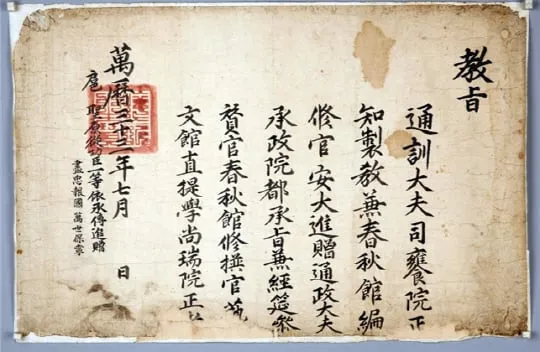 教旨
通訓大夫司饔院正
知製教兼春秋館編
修官安大進贈通政大夫
承政院都承旨兼經筵參
贊官春秋館修撰官藝
文館直提學尚瑞院正
萬曆三十三年七月 日
扈聖原從功臣一等依承傳追贈
盡忠報國 萬世保